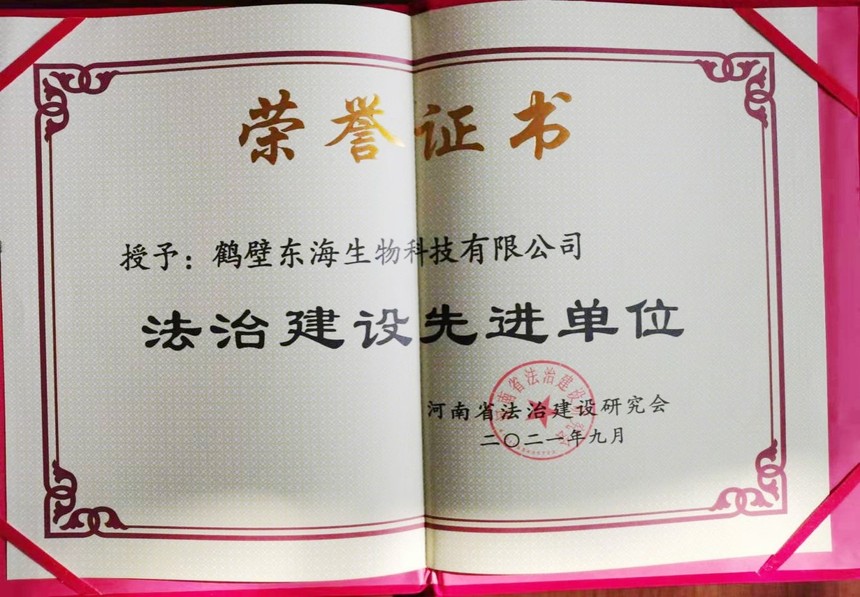 荣誉证书
授予：鹤壁东海生物科技有限公司
法治建设先进单位
河南省法治建设研究会
二〇二一年九月
河南省法治建设研究会